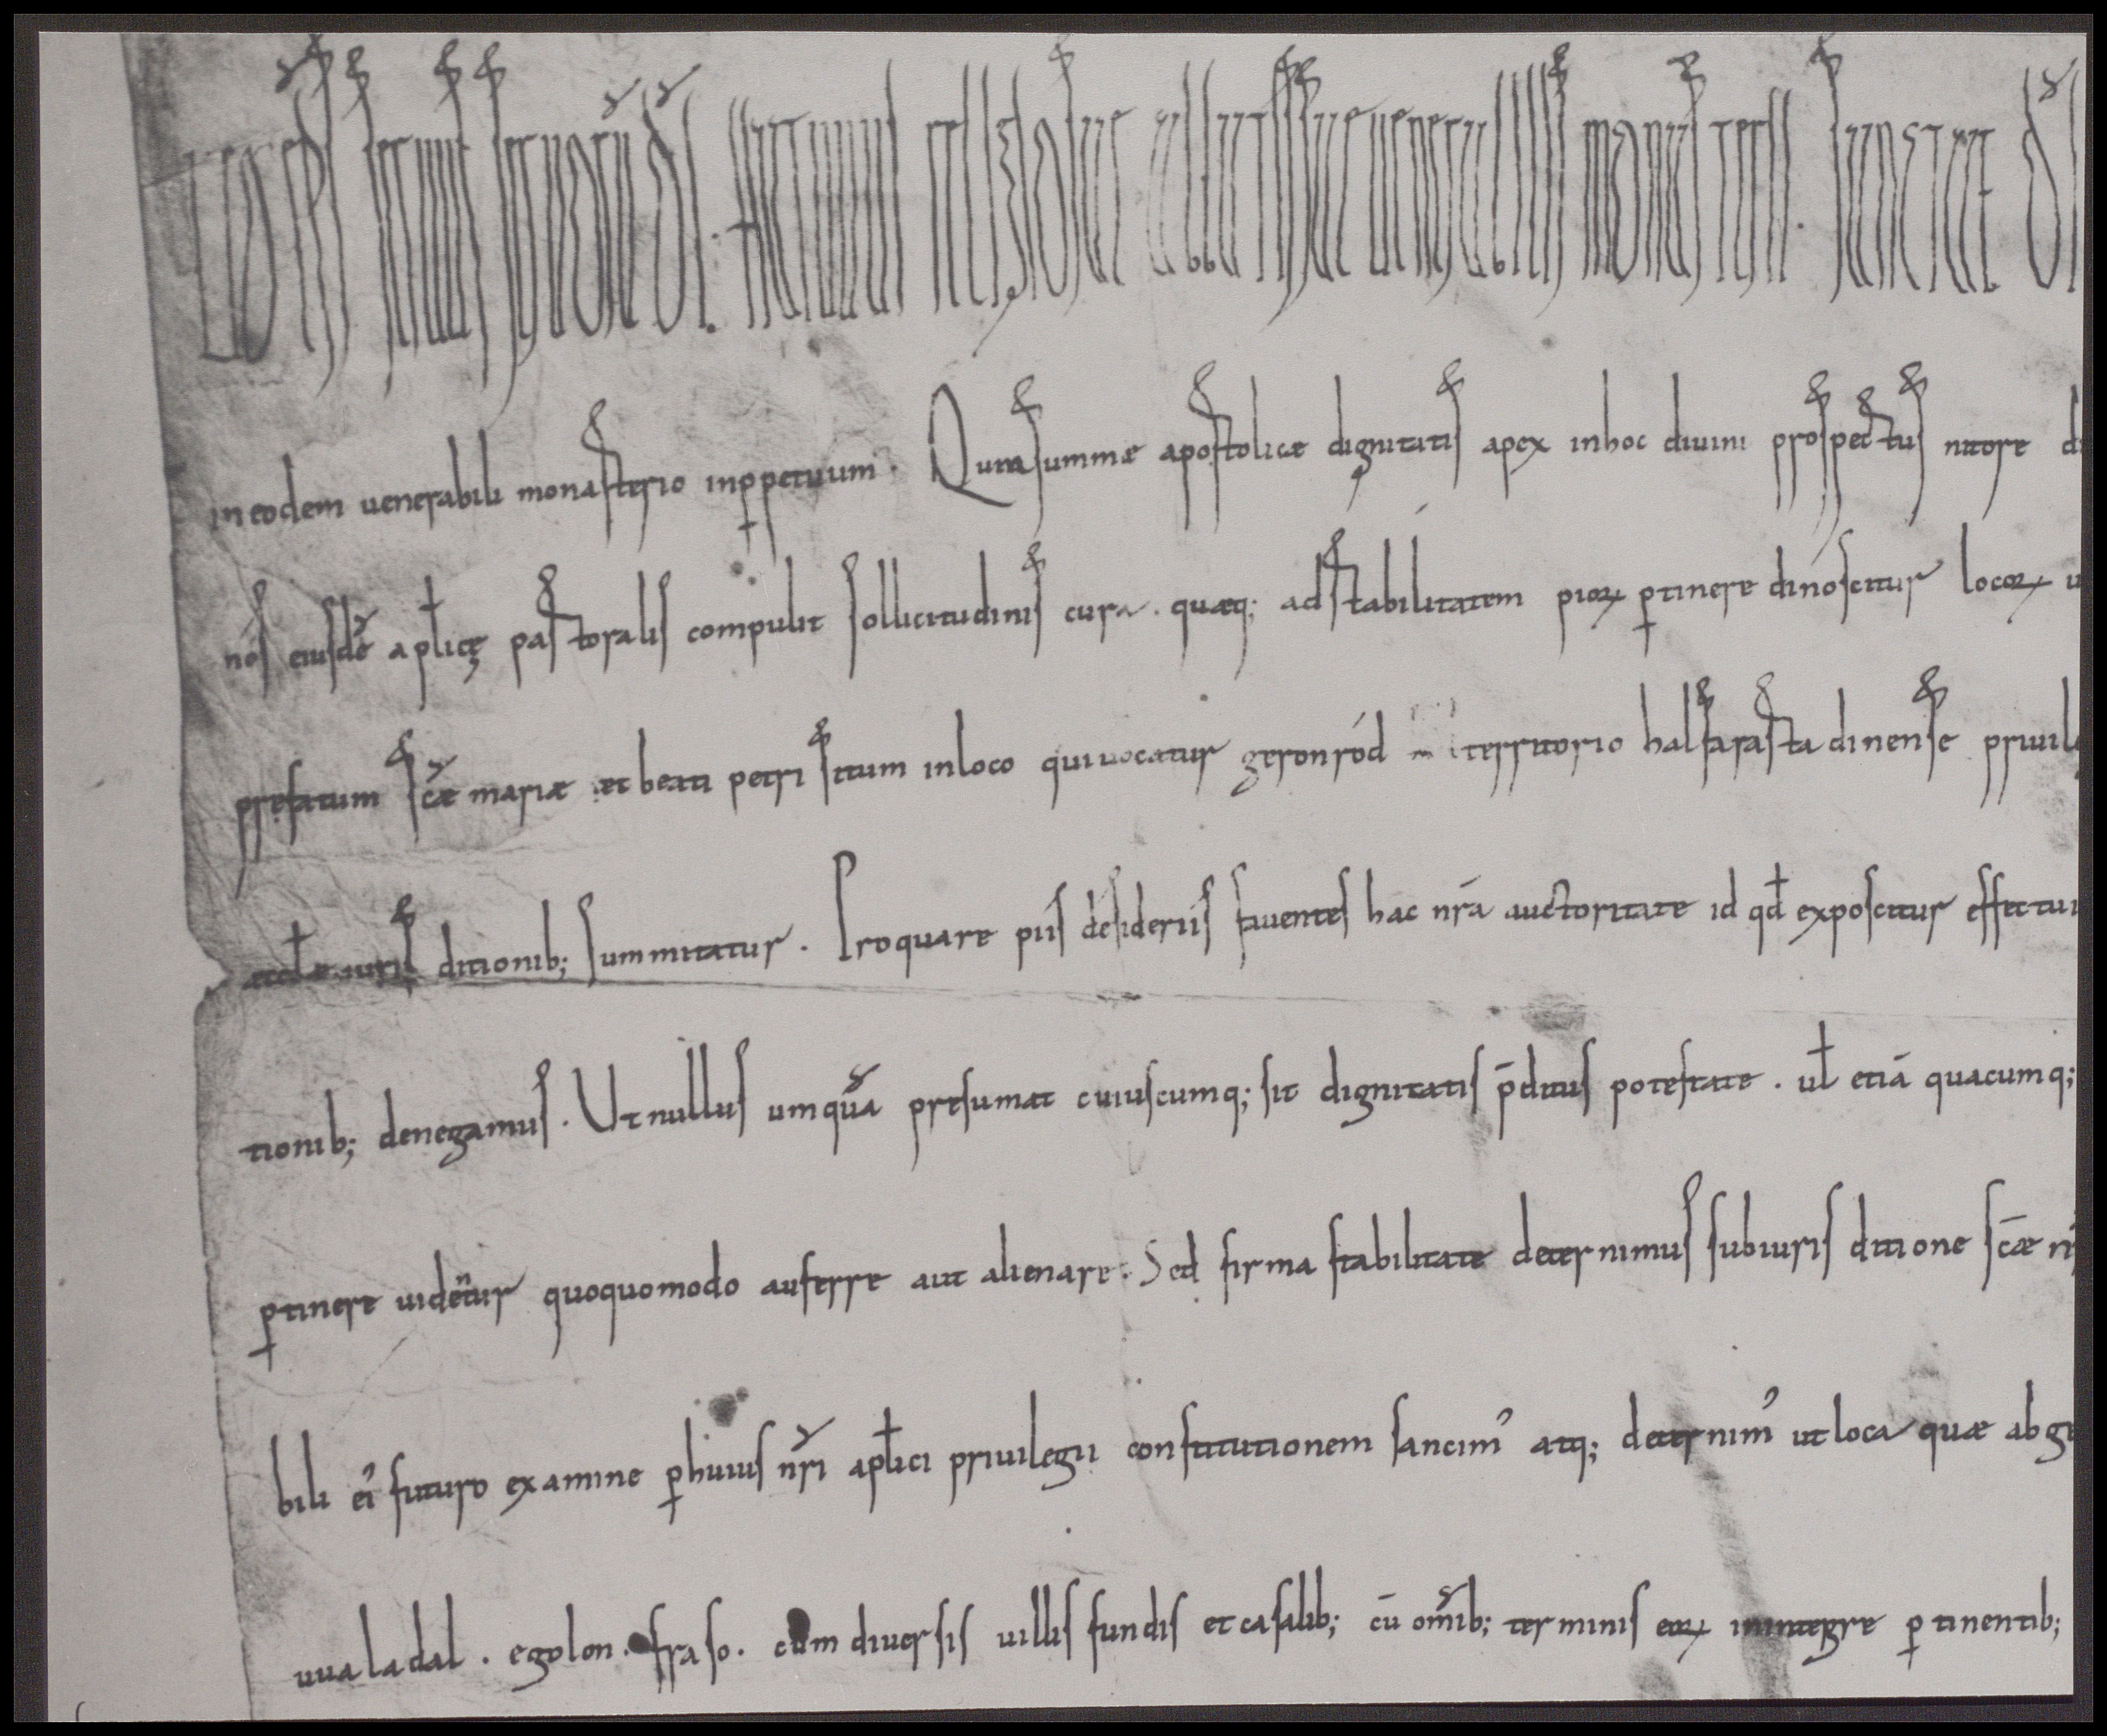 LEO EPS seruus seruorũ dI. Hathuuui religiosae abbatissae uenerabilis monasterii. Sanctae dI
in eodem uenerabili monasterio inp̱petuum. Qum summæ apostolicæ dignitatis apex inhoc diuini prospectus nitore
nos eiusdẽ apƚicę pastoralis compulit sollicitudinis cura. quæq; adstabilitatem pioꝝ ꝑtinere dinoscitur locoꝝ
prefatum scæ̃ mariæ et beati petri situm inloco quiuocatur geronród territorio halfarastadinense priuile
eccƚæ iuris ditionib; summitatur. Proquare piis desideriis fauentes hac nrã auctoritate id qđ exposcitur effectui
tionib; denegamus. Ut nullus umquã presumat cuiuscumq; sit dignitatis p̄ditus potestate. uƚ etiã quacumq;
ꝑtinere uidẽtur quoquomodo auferre aut alienare. Sed firma stabilitate decernimus subiuris ditione scæ̃
bili eı᷒ futuro examine ꝑhuius nr̃i apƚici priuilegii constitutionem sancim᷒ atq; decernim᷒ ut loca quæ ab ge
uualadal. egolon. fraso. cum diuersis uillis fundis et casalib; cũ om̃ib; terminis eoꝝ inintegre ꝑtinentib;